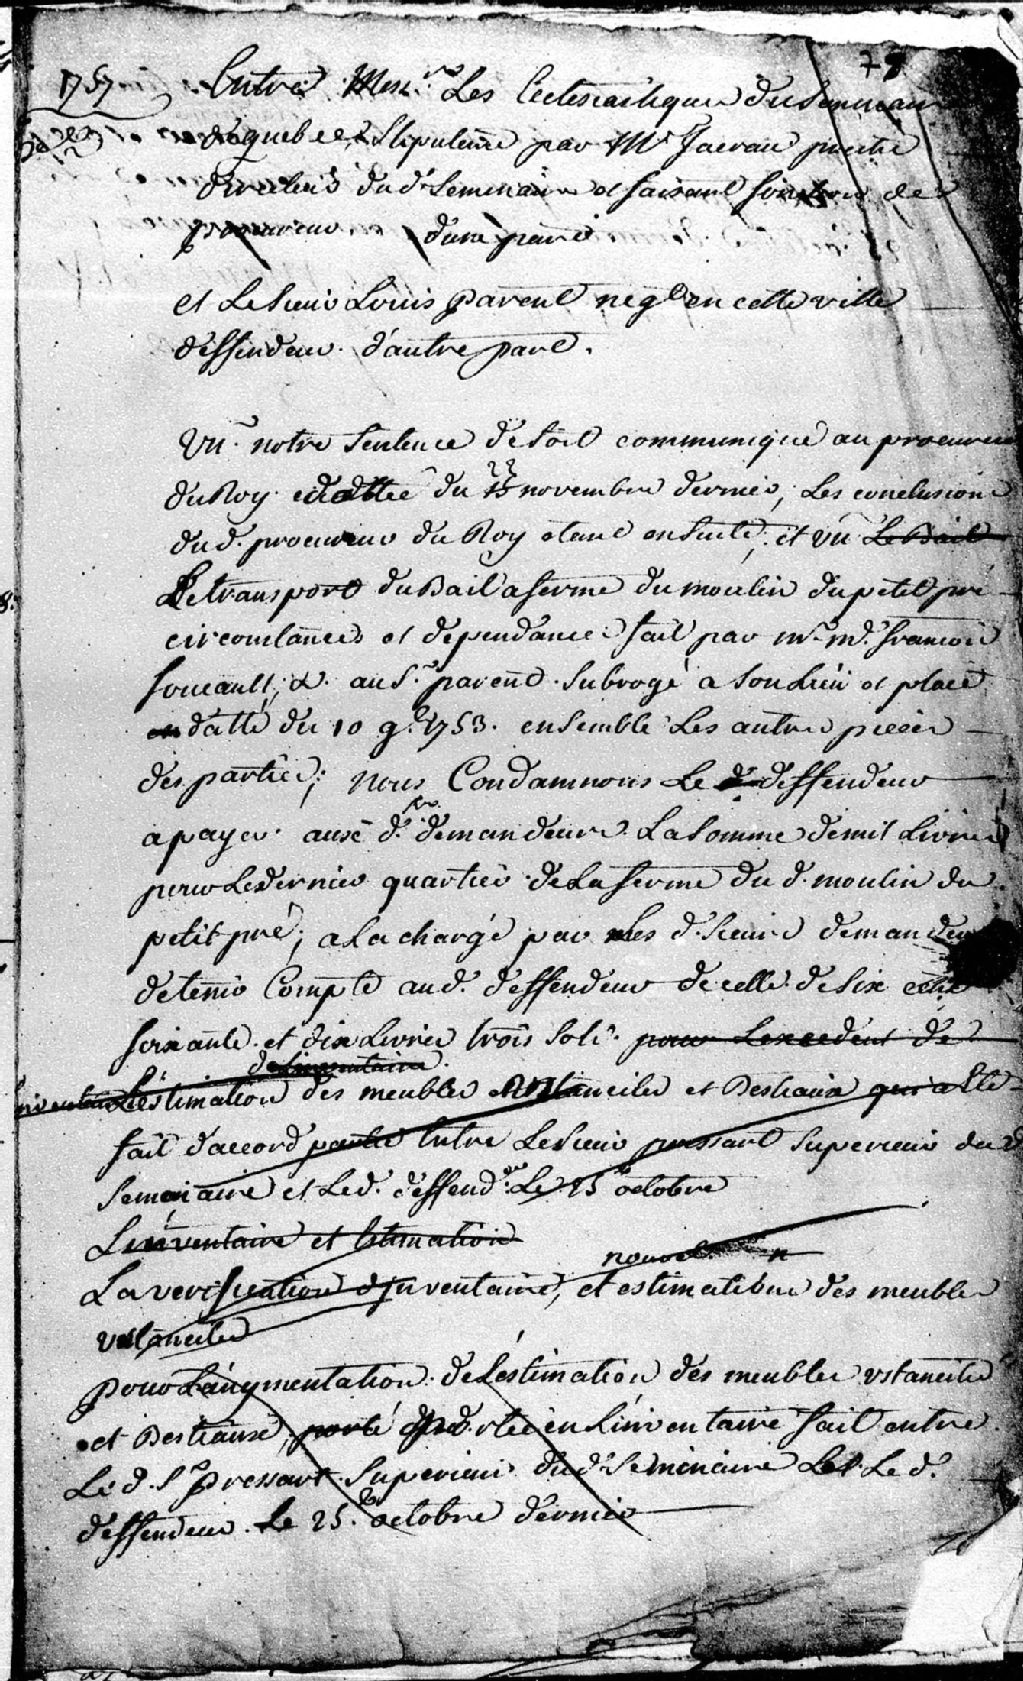 79
1757
Entre Mess.rs Les Ecclesiastiques du Seminaire
de quebec, Stipulant par Mr Jacrau pretre
directeur du d. Seminaire et faisant fonction de
procureur d'une part
et Le Sieur Louis parent neg.t en cette ville
deffendeur d'autre part.
Vû notre Sentence de Soit communiqué au procureur
du Roy dattée du 22 novembre dernier, Les conclusions
du d. procureur du Roy etant ensuite; et vû Le Bail
Le transport du Bail a ferme du moulin du petit pré
circonstances et dependances fait par mr. françois
foucault, &. au S.r parent Subrogé a Son Lieu et place
en datte du 10 9.bre 1753. ensemble Les autres pieces
des parties; nous Condamnons Le d. deffendeur
a payer aus d. demandeurs La Somme de mil Livres
pour Le dernier quartier de La ferme du d. moulin du
petit pré; a La charge par Les d. Sieurs demandeurs
de tenir Compte au d. deffendeur de celle de Six cent
soixante et dix Livres trois Sols pour Lexcedent de
de Linventaire
Lestimation des meubles ustanciles et Bestiaux qui a été
fait d'accord Entre Le Sieur pressart Superieur du d.
Seminaire et Le d. deffend.eur Le 25 octobre
Linventaire et Estimation
nouvel
La verification dinventaire, et estimation des meubles
ustanciles
pour Laugmentation de Lestimation des meubles ustanciles
et Bestiaux, portée en Linventaire fait entre
Le d. S.r Pressart Superieur du d. Seminaire et Le d.
deffendeur Le 25. octobre dernier